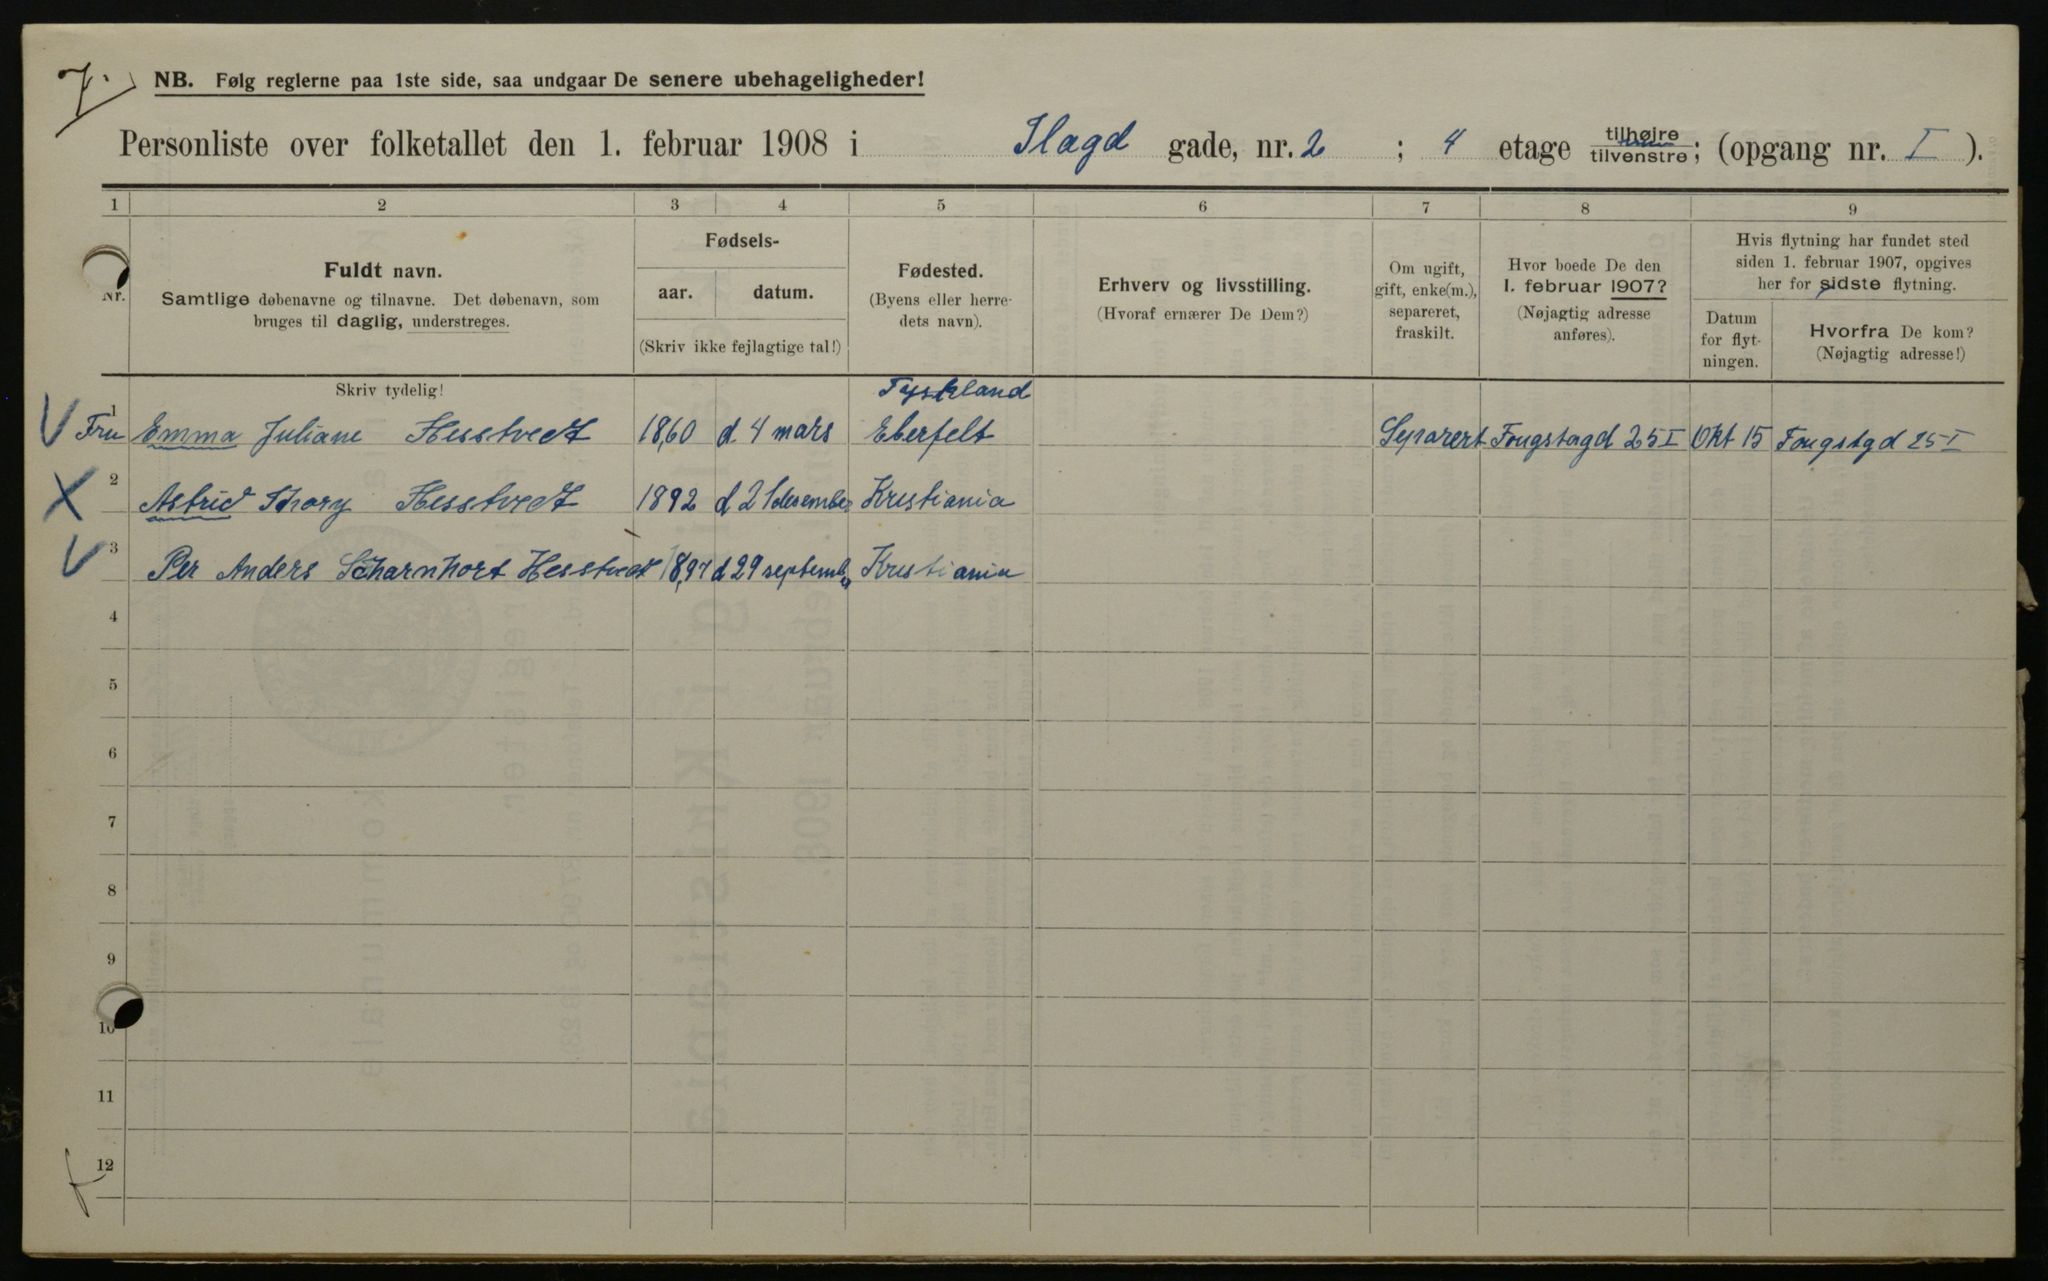 7.
NB. Følg reglerne paa 1ste side, saa undgaar De senere ubehageligheder!
Personliste over folketallet den 1. februar 1908 i Ilagd gade, nr. 2 ; 4 etage tilhøjre tilvenstre; (opgang nr. I ).
1 2 3 4 5 6 7 8 9
Nr.
Fuldt navn.
Samtlige døbenavne og tilnavne. Det døbenavn, som
bruges til daglig, understreges.
Fødsels-
aar. datum.
(Skriv ikke fejlagtige tal!)
Fødested.
(Byens eller herre-
dets navn).
Erhverv og livsstilling.
(Hvoraf ernærer De Dem?)
Om ugift,
gift, enke(m.),
separeret,
fraskilt.
Hvor boede De den
1. februar 1907?
(Nøjagtig adresse
anføres).
Hvis flytning har fundet sted
siden 1. februar 1907, opgives
her for sidste flytning.
Datum
for flyt-
ningen.
Hvorfra De kom?
(Nøjagtig adresse!)
Skriv tydelig!
Tyskland
1 Fru Emma Juliane Hesstvedt 1860 d. 4 mars Eberfelt Separert Fougstagd 25 I Okt 15 Fougstgd 25 I
2 Astrid Thory Hesstvedt 1892 d 21 desember Kristiania
3 Per Anders Scharnhort Hesstvedt 1897 d 29 septemb Kristiania
4
5
6
7
8
9
10
11
12